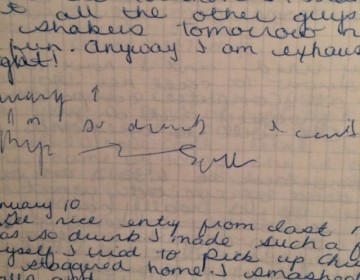 t all the other guys
shakers tomorrow n
fun. Anyway I am exhaus
ght!
nuary 9
I'm so drunk I can't
nuary 10
nice entry from last n
as so drunk I made such a f
myself I tried to pick up cha
staggered home. I smashed